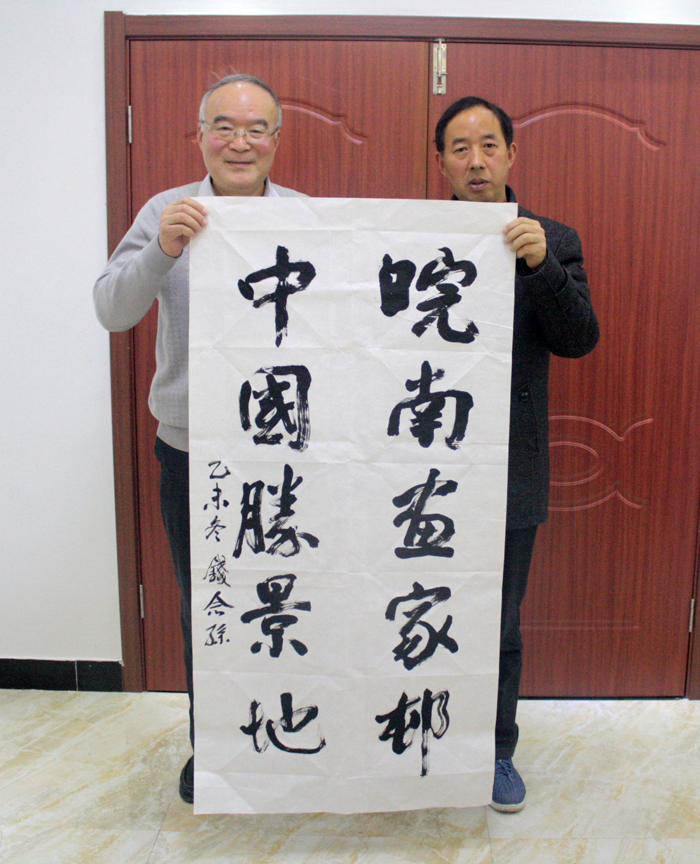 皖南画家邨
中國勝景地
乙未冬 錢念孫